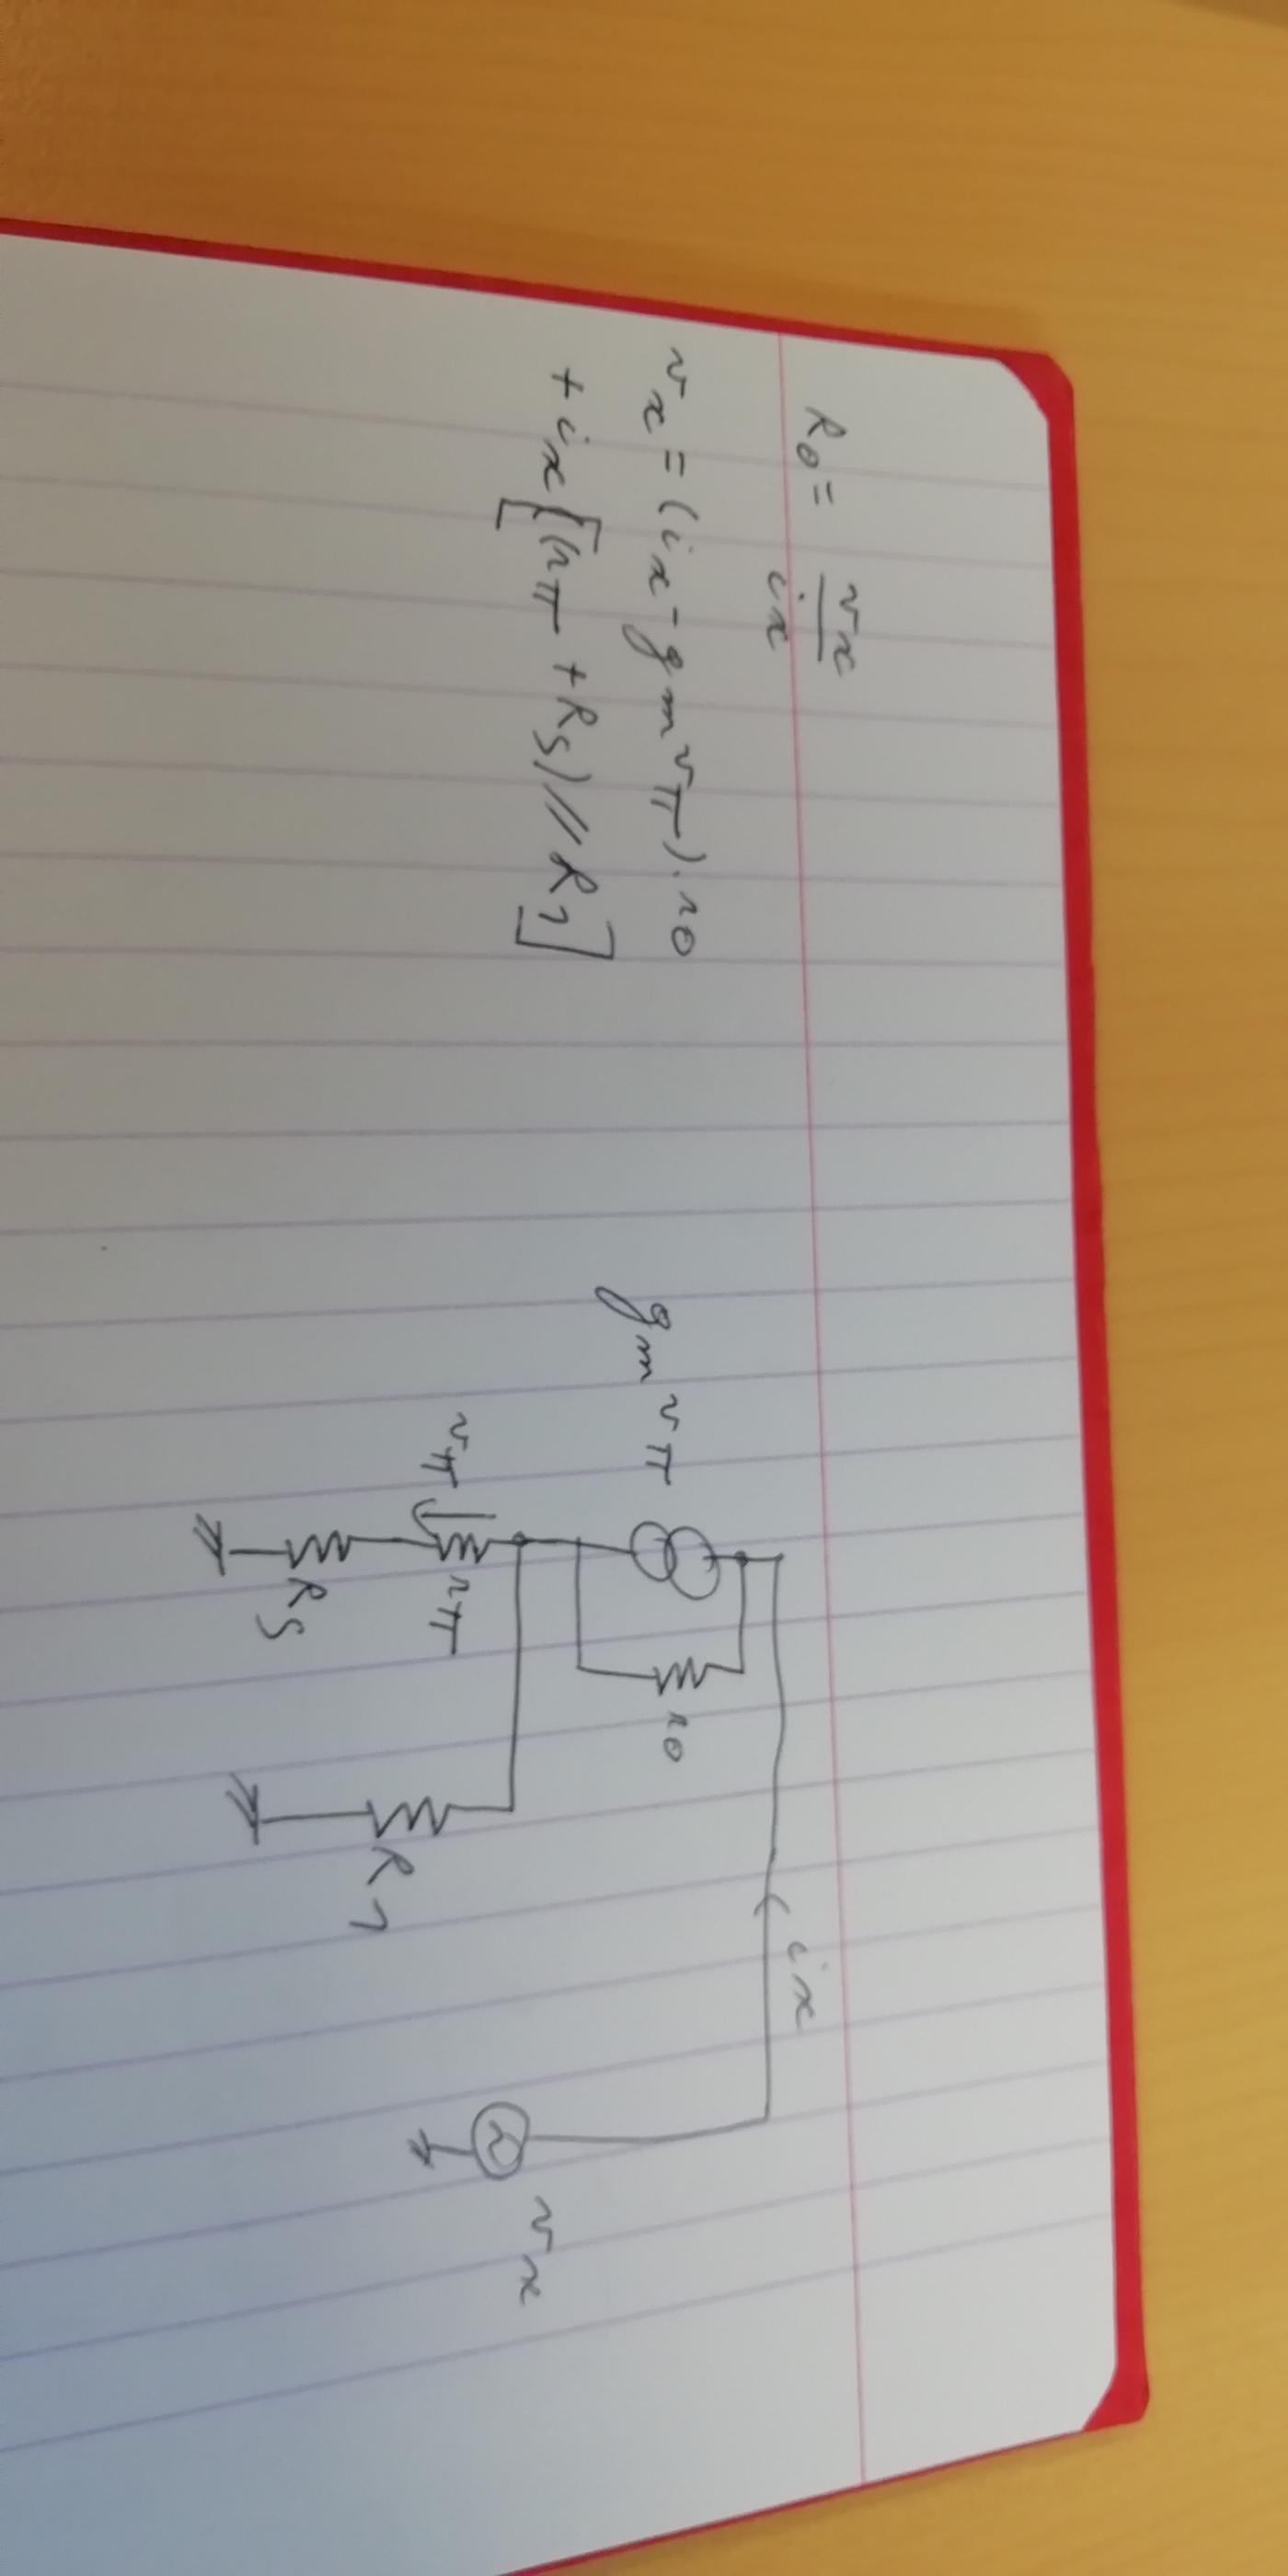 R0 = vx/ix
vx = (ix - gm vπ) . r0
+ ix [(rπ + RS) // R1]
gm vπ
r0
ix
vπ
rπ
RS
R1
vx